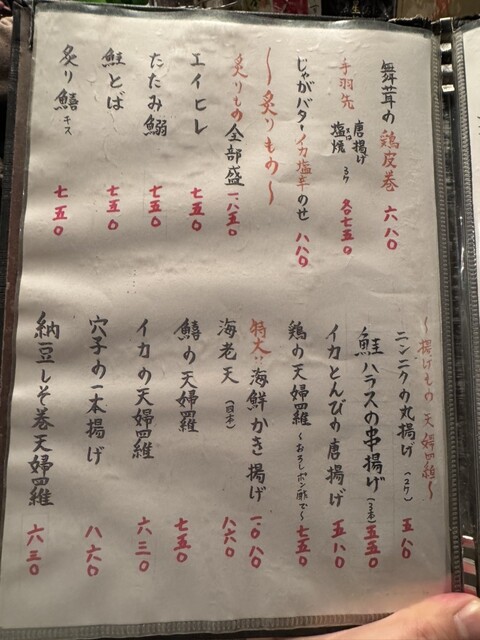 舞茸の鶏皮巻 六八〇
手羽先 唐揚げ 塩焼 各七五〇
じゃがバターイカ塩辛のせ 八八〇
〜炙りもの〜
炙りもの全部盛 一八五〇
エイヒレ 七五〇
たたみ鰯 七五〇
鮭とば 七五〇
炙り鱚 キス 七五〇
〜揚げもの 天婦羅〜
ニンニクの丸揚げ (2ケ) 五八〇
鮭ハラスの串揚げ 五五〇
イカとんびの唐揚げ 五八〇
鶏の天婦羅〜おろしポン酢で〜 七五〇
特大海鮮かき揚げ 一〇八〇
海老天 八六〇
鱚の天婦羅 七五〇
イカの天婦羅 六三〇
穴子の一本揚げ 八六〇
納豆しそ巻天婦羅 六三〇